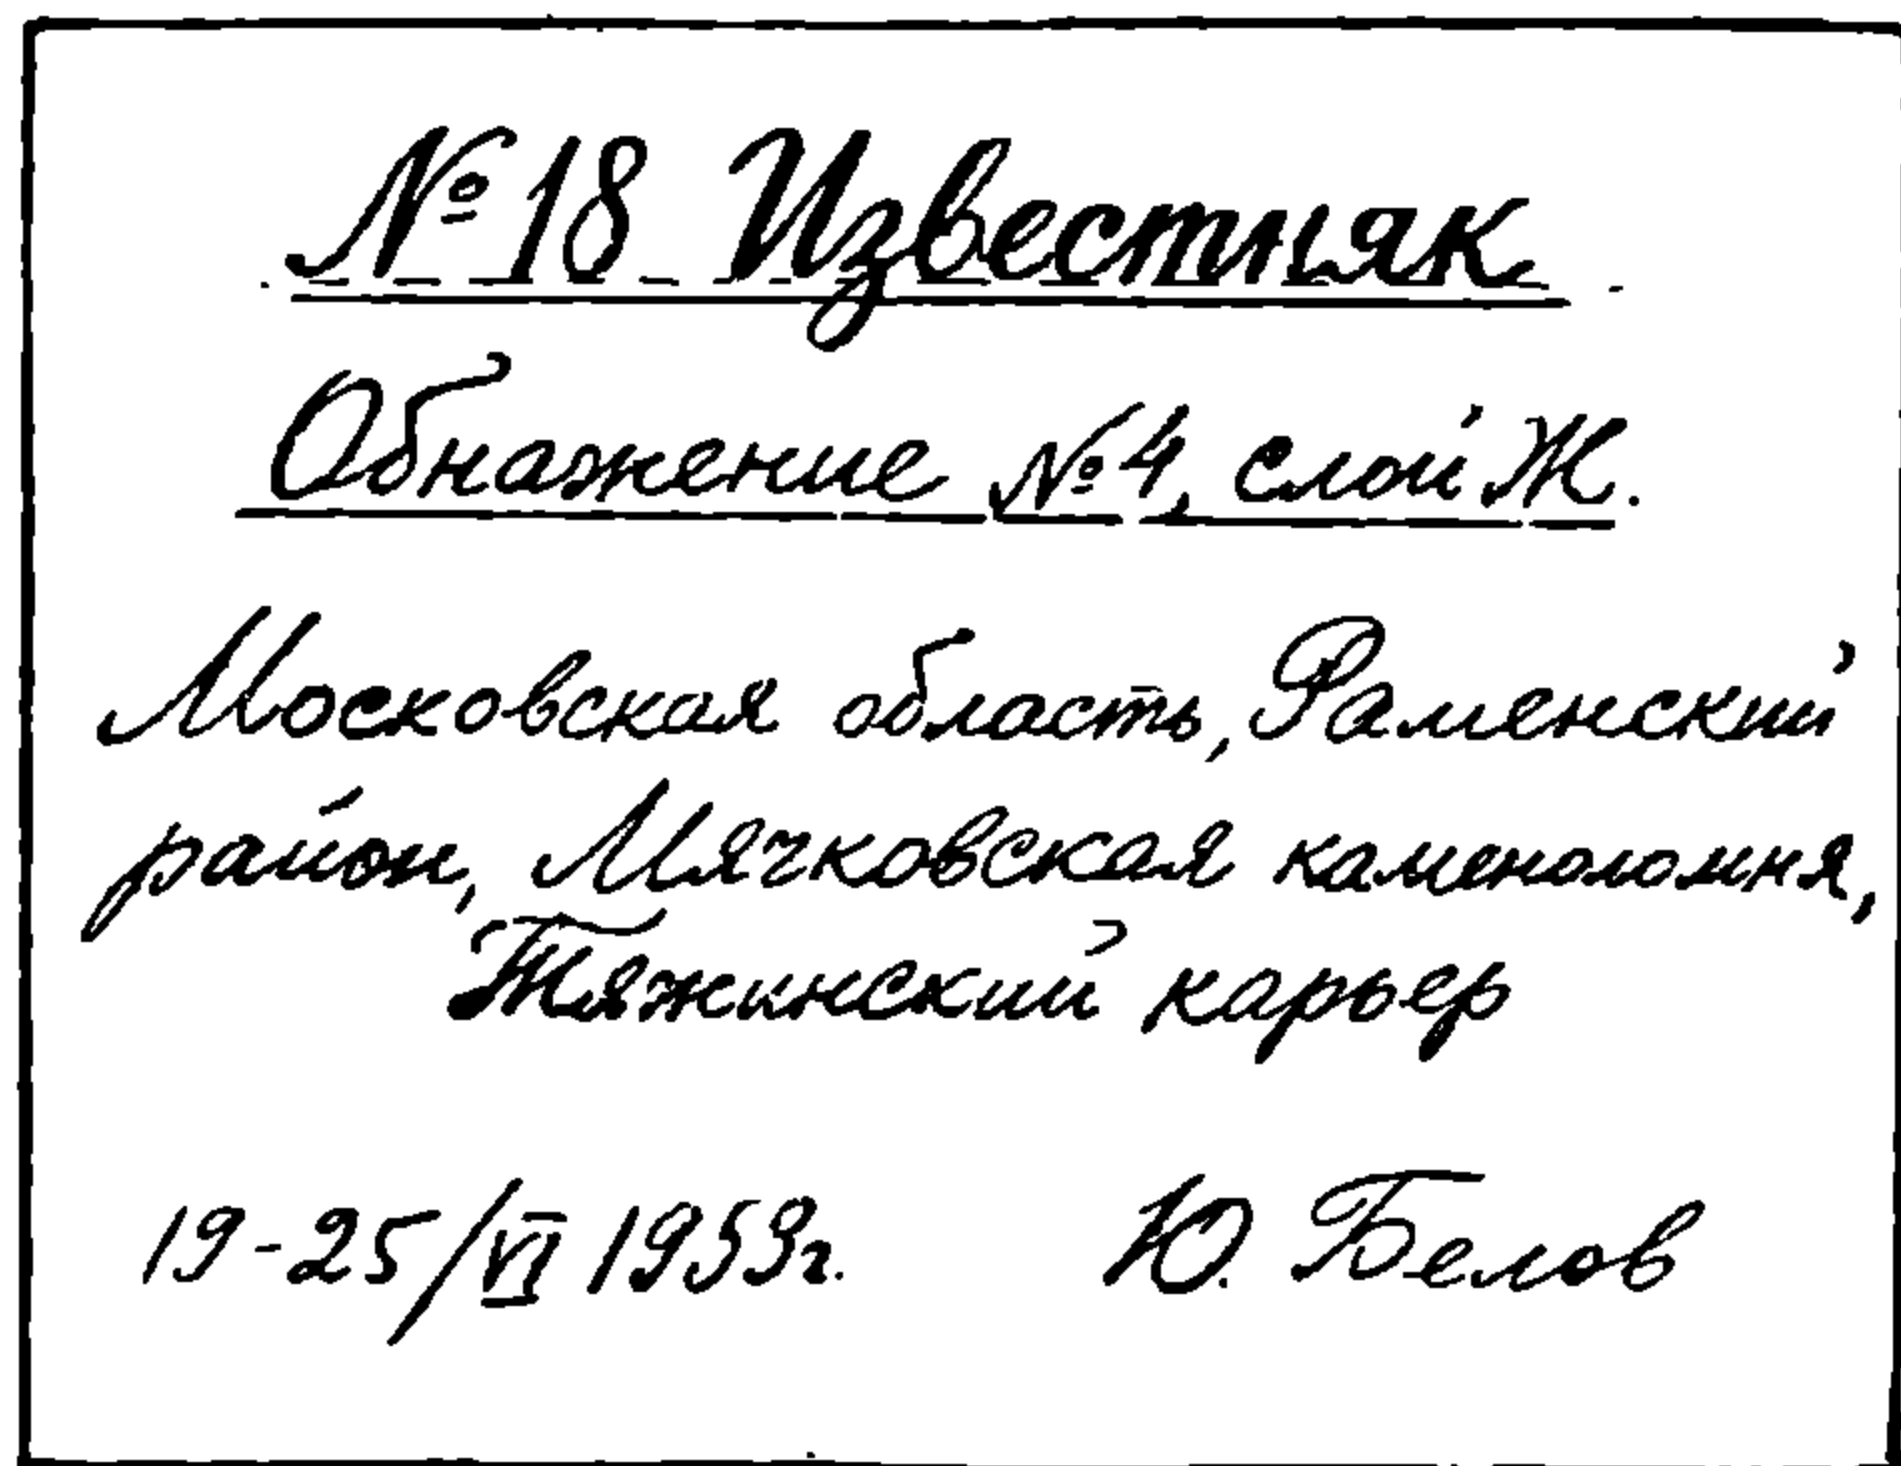 № 18 Известняк
Обнажение № 4, слой Ж.
Московская область, Раменский
район, Мячковская каменоломня,
Тяжинский карьер
19-25/VI 1953г. Ю. Белов